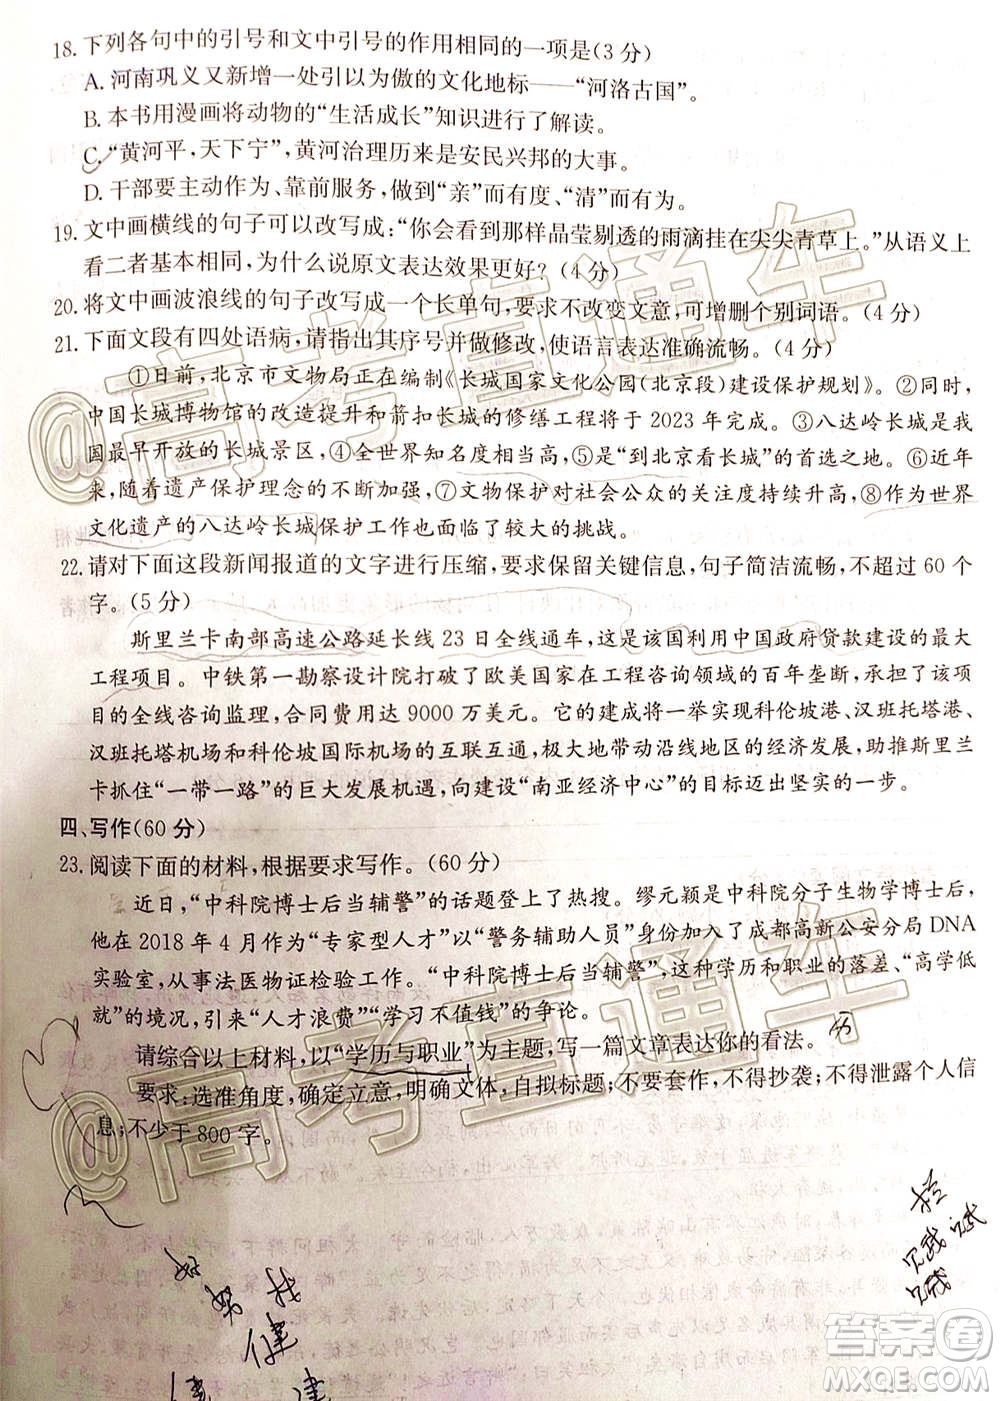 18.下列各句中的引号和文中引号的作用相同的一项是(3分)
A.河南巩义又新增一处引以为傲的文化地标——“河洛古国”。
B.本书用漫画将动物的“生活成长”知识进行了解读。
C.“黄河平,天下宁”,黄河治理历来是安民兴邦的大事。
D.干部要主动作为、靠前服务,做到“亲”而有度、“清”而有为。
19.文中画横线的句子可以改写成:“你会看到那样晶莹剔透的雨滴挂在尖尖青草上。”从语义上
看二者基本相同,为什么说原文表达效果更好?(4分)
20.将文中画波浪线的句子改写成一个长单句,要求不改变文意,可增删个别词语。(4分)
21.下面文段有四处语病,请指出其序号并做修改,使语言表达准确流畅。(4分)
①日前,北京市文物局正在编制《长城国家文化公园(北京段)建设保护规划》。②同时,
中国长城博物馆的改造提升和箭扣长城的修缮工程将于2023年完成。③八达岭长城是我
国最早开放的长城景区,④全世界知名度相当高,⑤是“到北京看长城”的首选之地。⑥近年
来,随着遗产保护理念的不断加强,⑦文物保护对社会公众的关注度持续升高,⑧作为世界
文化遗产的八达岭长城保护工作也面临了较大的挑战。
22.请对下面这段新闻报道的文字进行压缩,要求保留关键信息,句子简洁流畅,不超过60个
字。(5分)
斯里兰卡南部高速公路延长线23日全线通车,这是该国利用中国政府贷款建设的最大
工程项目。中铁第一勘察设计院打破了欧美国家在工程咨询领域的百年垄断,承担了该项
目的全线咨询监理,合同费用达9000万美元。它的建成将一举实现科伦坡港、汉班托塔港、
汉班托塔机场和科伦坡国际机场的互联互通,极大地带动沿线地区的经济发展,助推斯里兰
卡抓住“一带一路”的巨大发展机遇,向建设“南亚经济中心”的目标迈出坚实的一步。
四、写作(60分)
23.阅读下面的材料,根据要求写作。(60分)
近日,“中科院博士后当辅警”的话题登上了热搜。缪元颖是中科院分子生物学博士后,
他在2018年4月作为“专家型人才”以“警务辅助人员”身份加入了成都高新公安分局DNA
实验室,从事法医物证检验工作。“中科院博士后当辅警”,这种学历和职业的落差、“高学低
就”的境况,引来“人才浪费”“学习不值钱”的争论。
请综合以上材料,以“学历与职业”为主题,写一篇文章表达你的看法。
要求:选准角度,确定立意,明确文体,自拟标题;不要套作,不得抄袭;不得泄露个人信
息;不少于800字。
@高考直通车
@高考直通车
答案卷
MXQE.COM